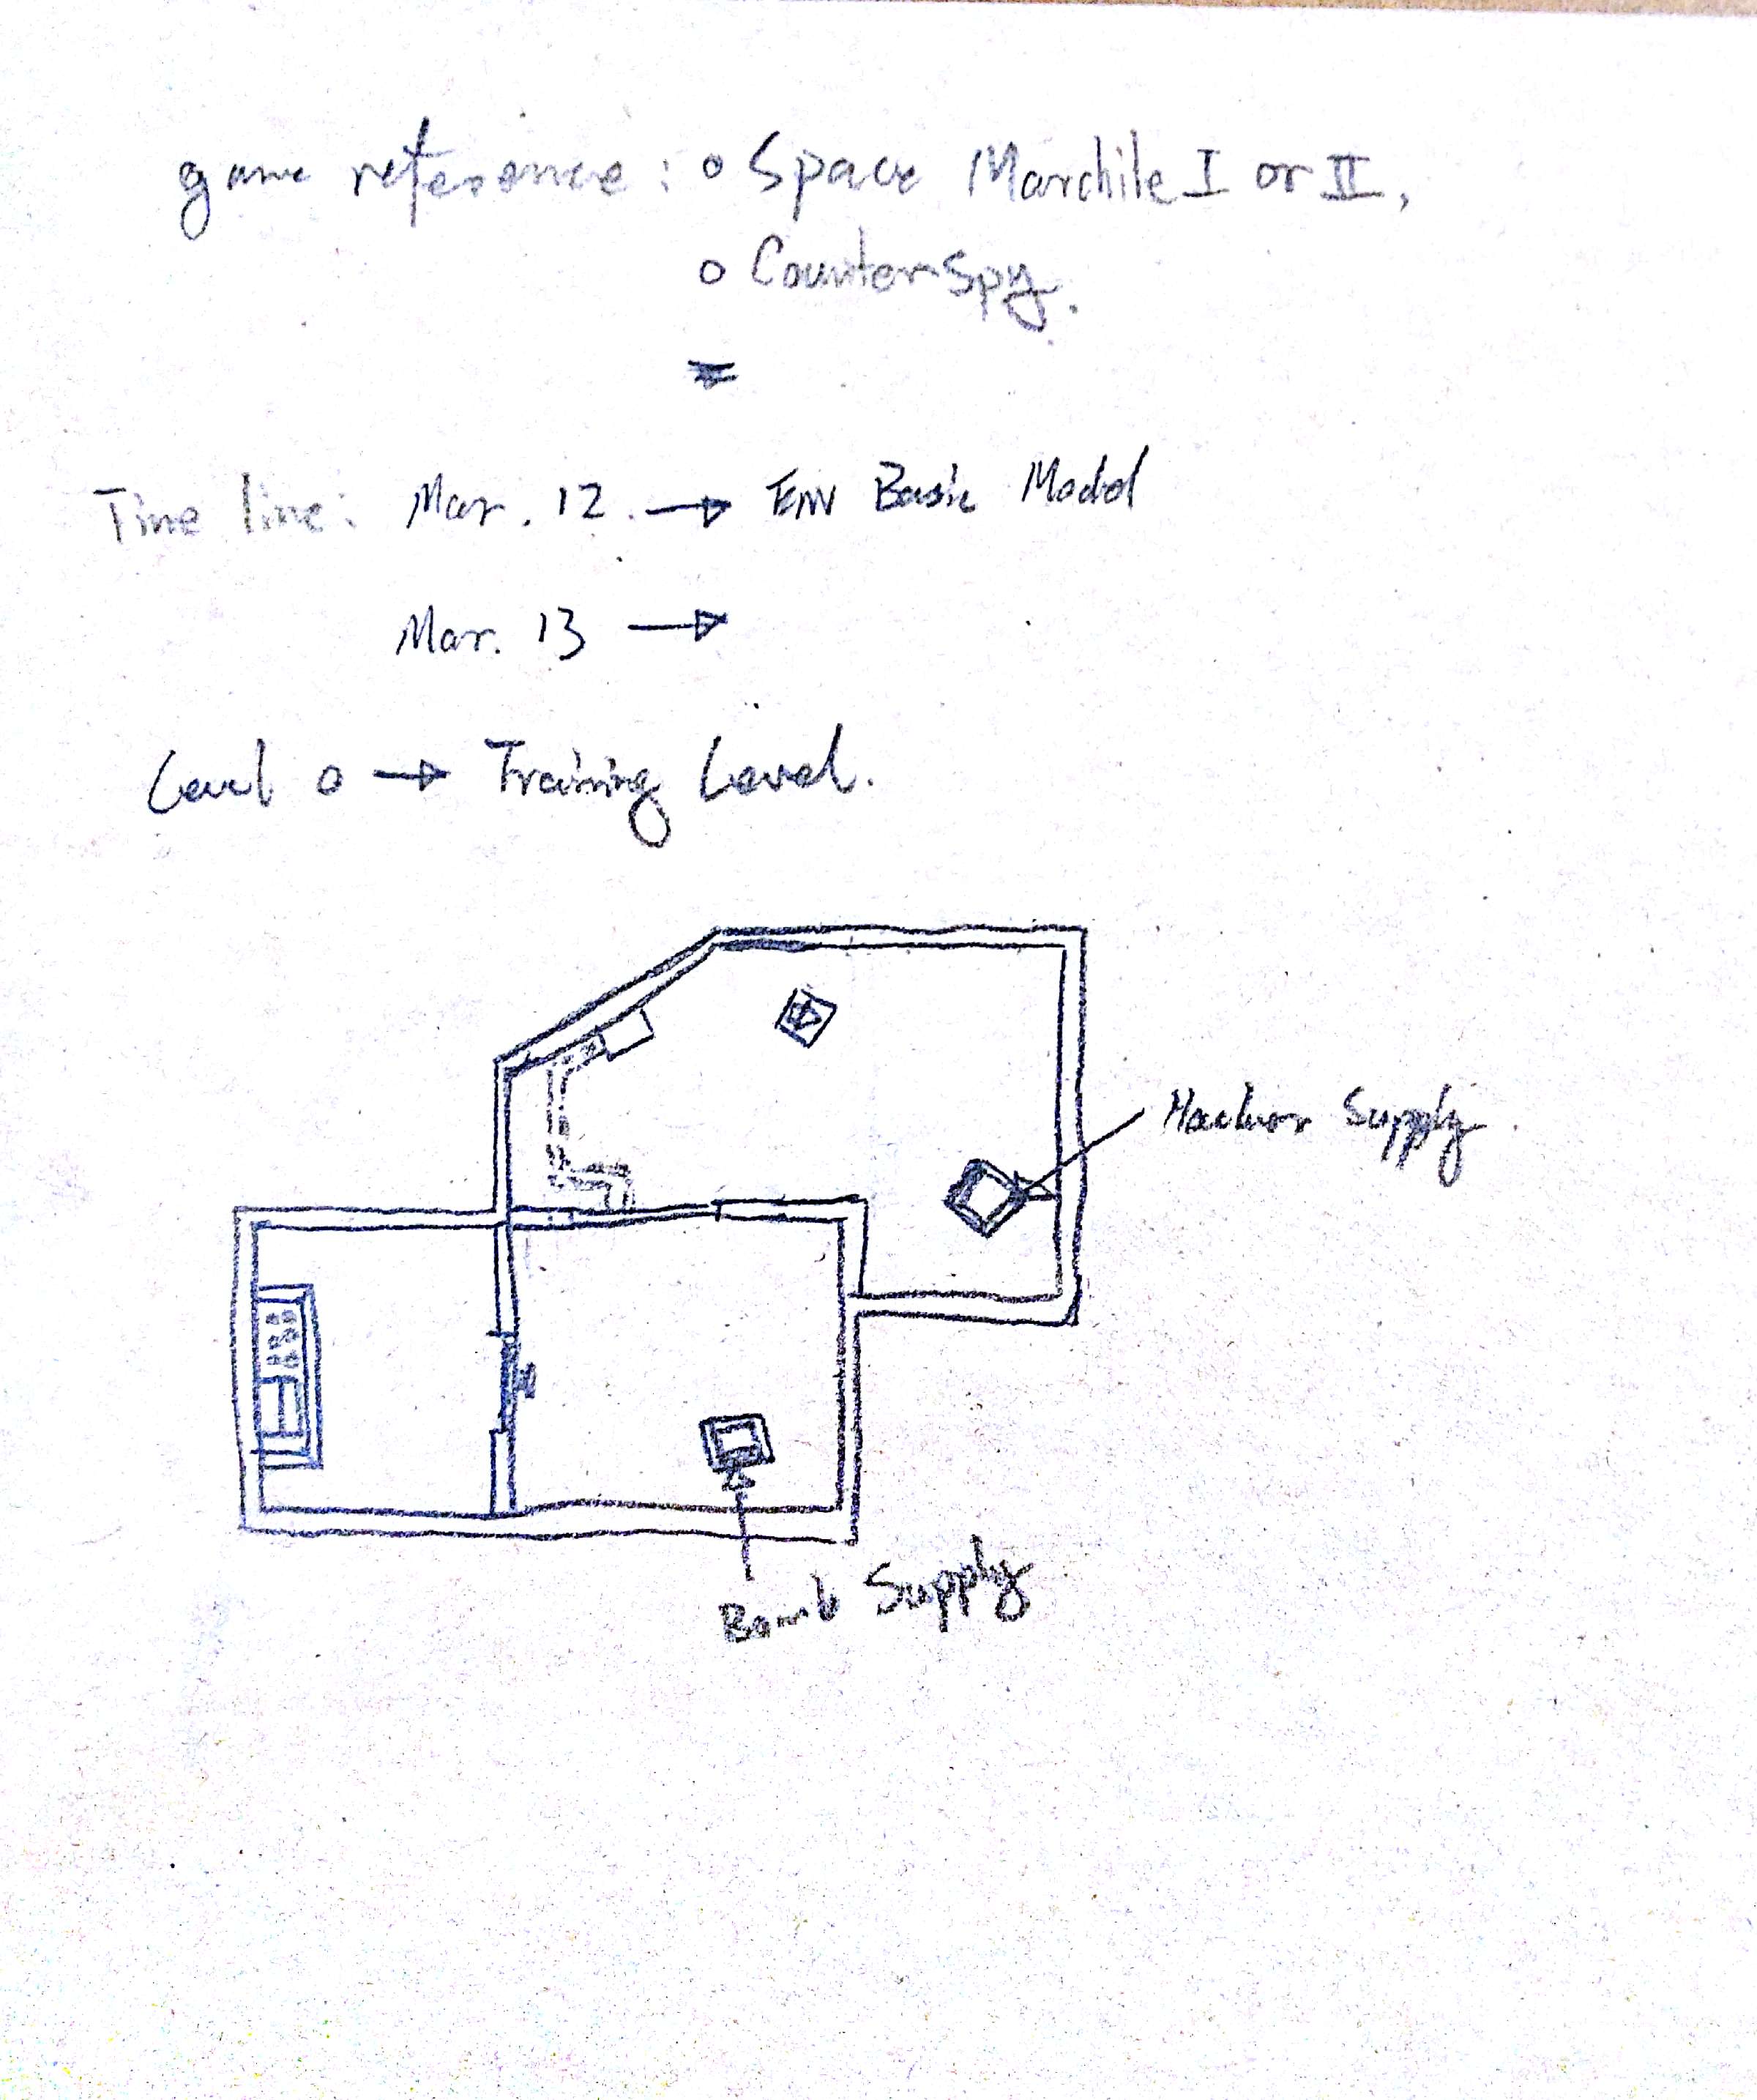 game reference: o Space Marchile I or II,
o CounterSpy.
Time line: Mar. 12. → Env Basic Model
Mar. 13 →
Level 0 → Training Level.
Supply.
Bomb Supply